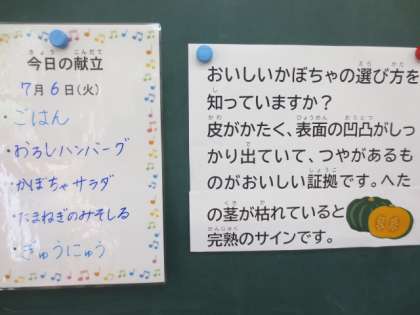 今日の献立
7月6日(火)
・ごはん
・おろしハンバーグ
・かぼちゃサラダ
・たまねぎのみそしる
・ぎゅうにゅう
おいしいかぼちゃの選び方を
知っていますか?
皮がかたく、表面の凹凸がしっ
かり出ていて、つやがあるも
のがおいしい証拠です。へた
の茎が枯れていると
完熟のサインです。